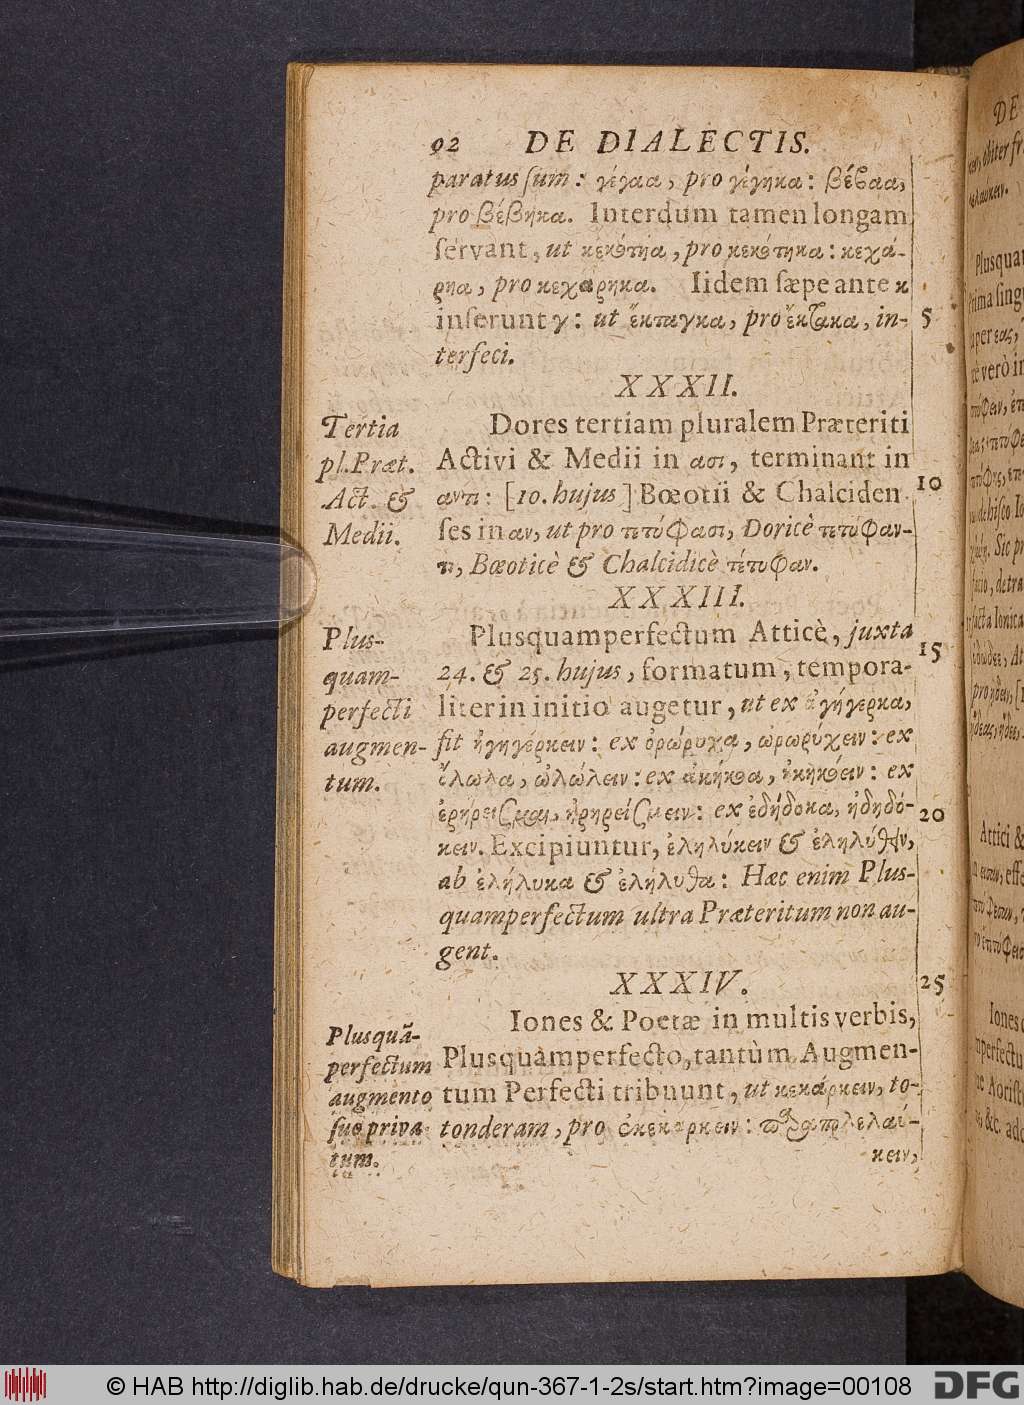 92 DE DIALECTIS.
paratus sum: γέγαα, pro γέγηκα: βέϐαα,
pro βέβηκα. Interdum tamen longam
servant, ut κεκότηα, pro κεκότηκα: κεχά-
ρηα, pro κεχάρηκα. Iidem sæpe ante κ
inserunt γ: ut ἔκταγκα, pro ἔκτακα, in- 5
terfeci.
XXXII.
Tertia
pl. Præt.
Act. &
Medii.
Dores tertiam pluralem Præteriti
Activi & Medii in ασι, terminant in
αντι: [10. hujus] Bœotii & Chalciden 10
ses in αν, ut pro τετύφασι, Doricè τετύφαν-
τι, Bœoticè & Chalcidicè τέτυφαν.
XXXIII.
Plus-
quam-
perfecti
augmen-
tum.
Plusquamperfectum Atticè, juxta
24. & 25. hujus, formatum, tempora- 15
liter in initio augetur, ut ex ἀγήγερκα,
fit ἠγηγέρκειν: ex ὀρώρυχα, ὠρωρύχειν: ex
ὄλωλα, ὠλώλειν: ex ἀκήκοα, ἠκηκόειν: ex
ἐρήρεισμαι, ἠρηρείσμειν: ex ἐδήδοκα, ἠδηδό- 20
κειν. Excipiuntur, ἐληλύκειν & ἐληλύθειν,
ab ἐλήλυκα & ἐλήλυθα: Hæc enim Plus-
quamperfectum ultra Præteritum non au-
gent.
XXXIV. 25
Plusquã-
perfectum
augmento
suo priva-
tum.
Iones & Poetæ in multis verbis,
Plusquamperfecto, tantùm Augmen-
tum Perfecti tribuunt, ut κεκάρκειν, to-
tonderam, pro ἐκεκάρκειν:
κειν,
DE
© HAB http://diglib.hab.de/drucke/qun-367-1-2s/start.htm?image=00108 DFG